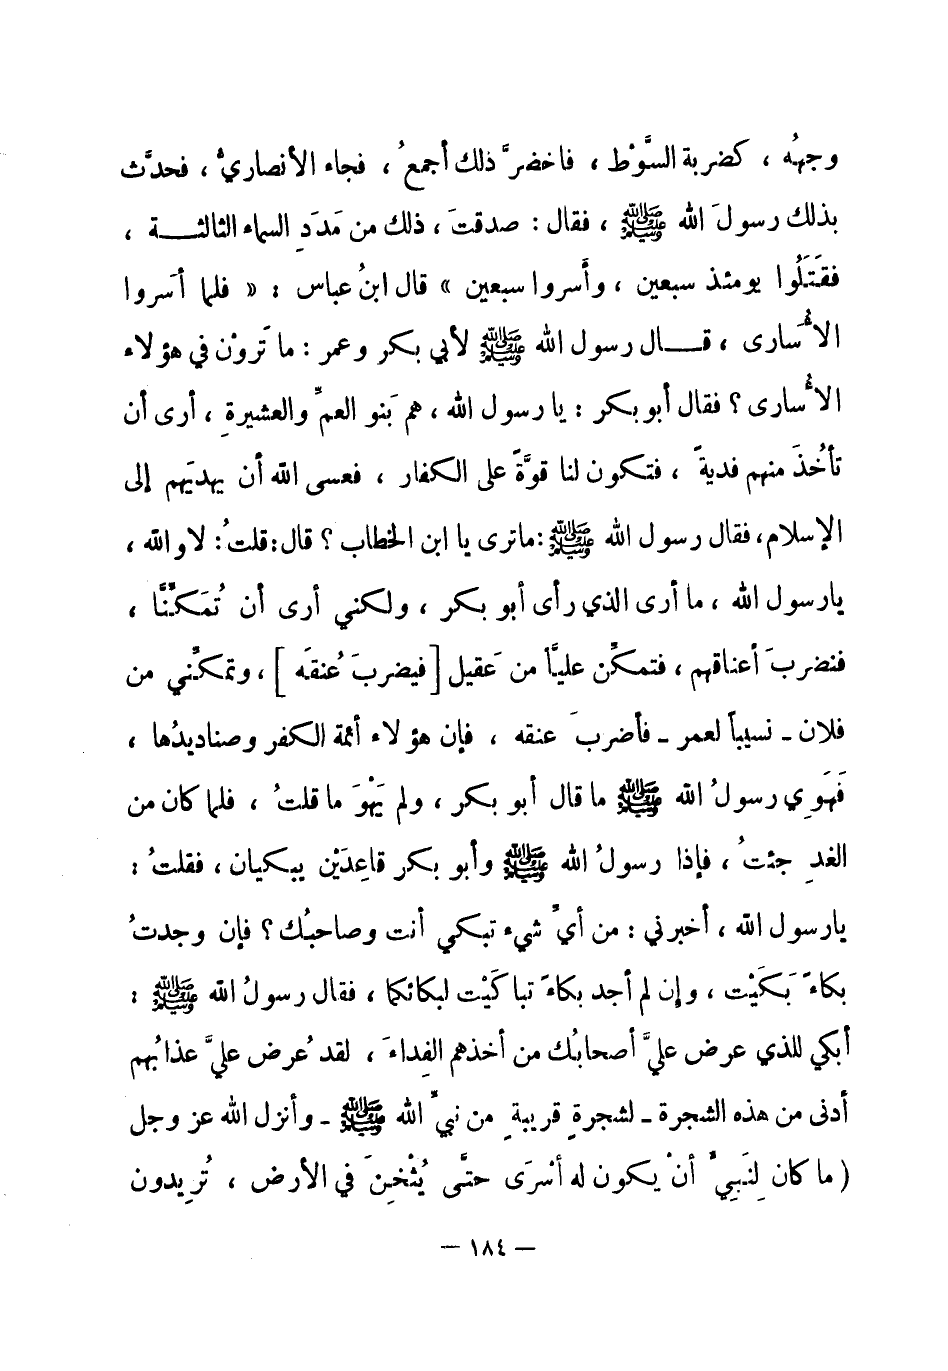 وجهُه ، كضربة السَّوْط ، فاخضرَّ ذلك أجمعُ ، فجاء الأنصاريُّ ، فحدَّث
بذلك رسولَ الله ﷺ ، فقال : صدقتَ ، ذلك من مَدَدِ السماء الثالثـــة ،
فقَتَلُوا يومئذ سبعين ، وأَسروا سبعين » قال ابنُ عباس : « فلما أسَروا
الأُسَارى ، قـــال رسول الله ﷺ لأبي بكر وعمر : ما تَروْن في هؤلاء
الأُسارى ؟ فقال أبو بكر : يا رسول الله ، هم بَنو العمِّ والعشيرةِ ، أرى أن
تأخُذَ منهم فديةً ، فتكون لنا قوَّةً على الكفار ، فعسى الله أن يهديَهم إلى
الإسلام، فقال رسول الله ﷺ :ماترى يا ابن الخطاب ؟ قال:قلتُ: لا والله ،
يارسول الله ، ما أرى الذي رأى أبو بكر ، ولكني أرى أن تُمَكِّنَّا ،
فنضربَ أعناقهم ، فتمكِّن عليَّا من عَقيل [فيضربَ عُنقَه ] ، وتمكِّني من
فلان ـ نسيباً لعمر ـ فأضربَ عنقه ، فإن هؤلاء أئمة الكفر وصناديدُها ،
فَهَوِي رسولُ الله ﷺ ما قال أبو بكر ، ولم يَهْوَ ما قلتُ ، فلما كان من
الغدِ جئتُ ، فإذا رسولُ الله ﷺ وأبو بكر قاعِدَيْن يبكيان ، فقلتُ :
يارسول الله ، أخبرني : من أيِّ شيء تبكي أنت وصاحبُك ؟ فإن وجدتُ
بكاءً بَكَيْت ، وإن لم أجد بكاءً تباكَيْت لبكائكما ، فقال رسولُ الله ﷺ :
أبكي للذي عرض عليَّ أصحابُك من أخذهم الفِداءَ ، لقد عُرض عليَّ عذابُهم
أدنى من هذه الشجرة ـ لشجرةٍ قريبةٍ من نبيِّ الله ﷺ ـ وأنزل الله عز وجل
( ما كان لِنَبيٍّ أنْ يكون له أسْرَى حتَّى يُثْخِنَ في الأرض ، تُرِيدون
— ١٨٤ —